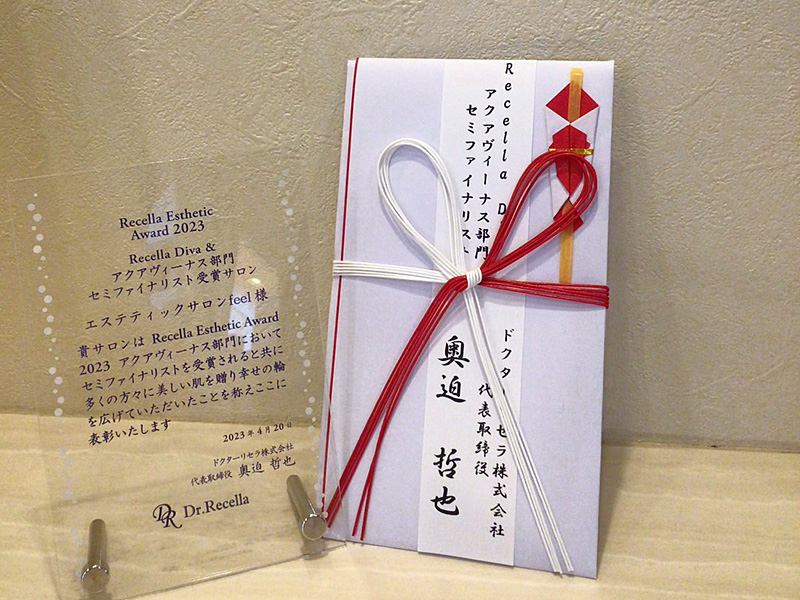 Recella Esthetic
Award 2023
Recella Diva &
アクアヴィーナス部門
セミファイナリスト受賞サロン
エステティックサロンfeel 様
貴サロンは Recella Esthetic Award
2023 アクアヴィーナス部門において
セミファイナリストを受賞されると共に
多くの方々に美しい肌を贈り幸せの輪
を広げていただいたことを称えここに
表彰いたします
2023年4月20日
ドクターリセラ株式会社
代表取締役 奥迫 哲也
DR Dr.Recella
Recella D
アクアヴィーナス部門
セミファイナリスト
ドクター セラ株式会社
代表取締役
奥迫 哲也